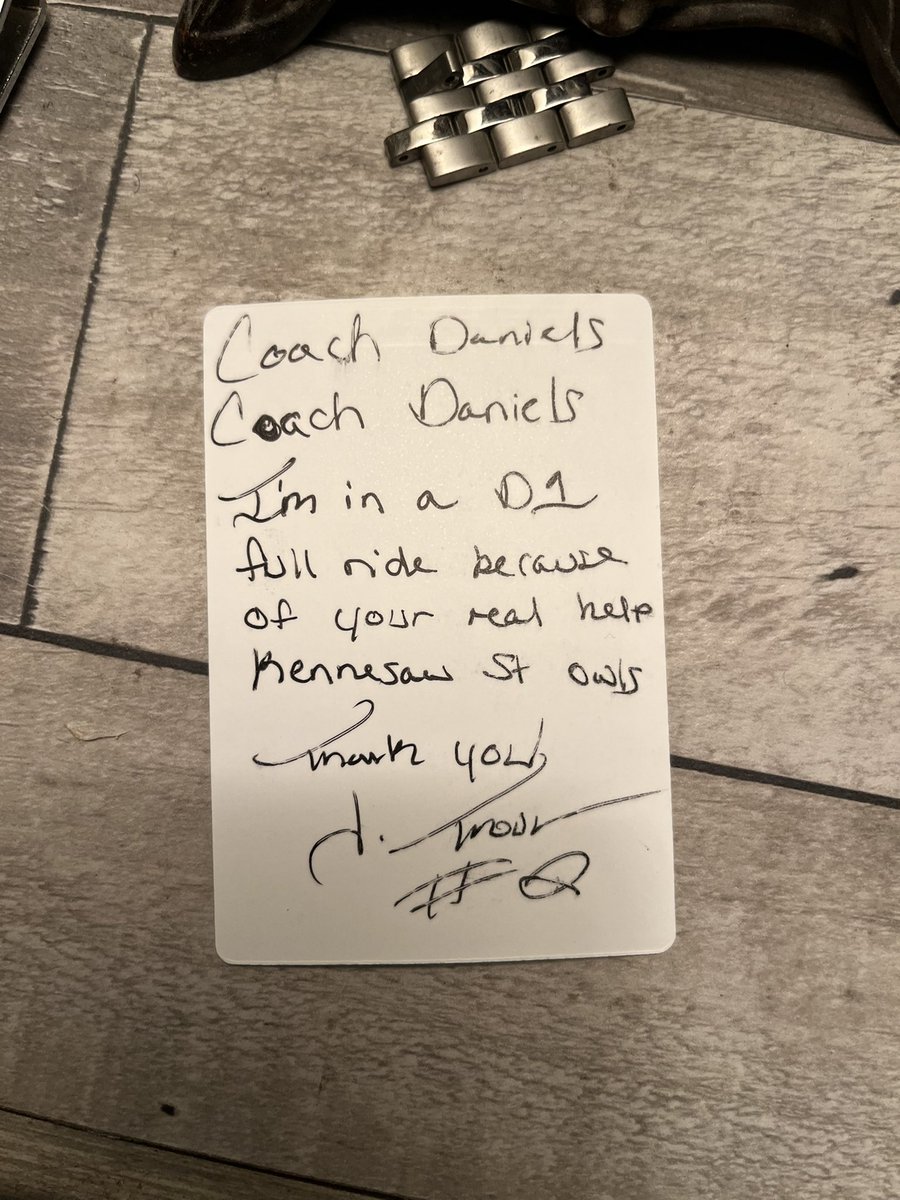 Coach Daniels
Coach Daniels
I'm in a D1
full ride because
of your real help
Kennesaw St owls
Thank you,
J.
#